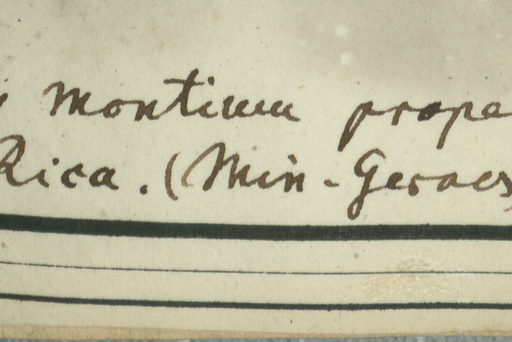 montium prope
Rica. (Min-Geraes